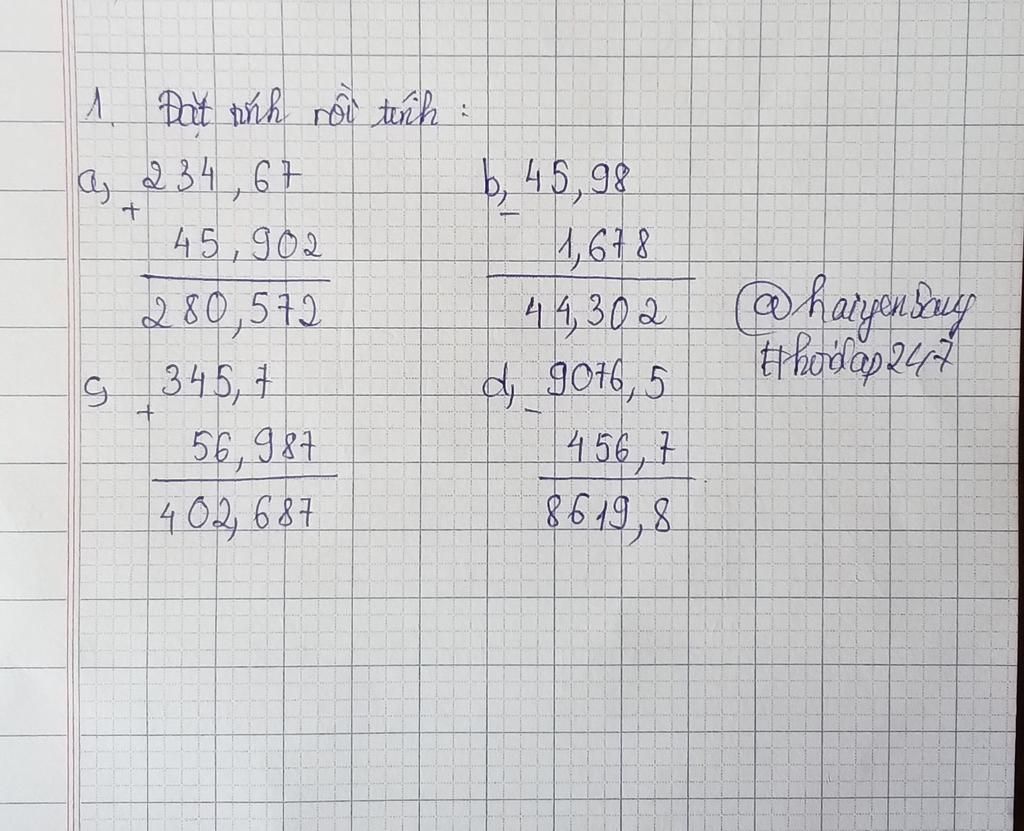 1. Đặt tính rồi tính :
a, 234,67
+
45,902
280,572
b, 45,98
−
1,678
44,302
c, 345,7
+
56,987
402,687
d, 9076,5
−
456,7
8619,8
#hoidap247